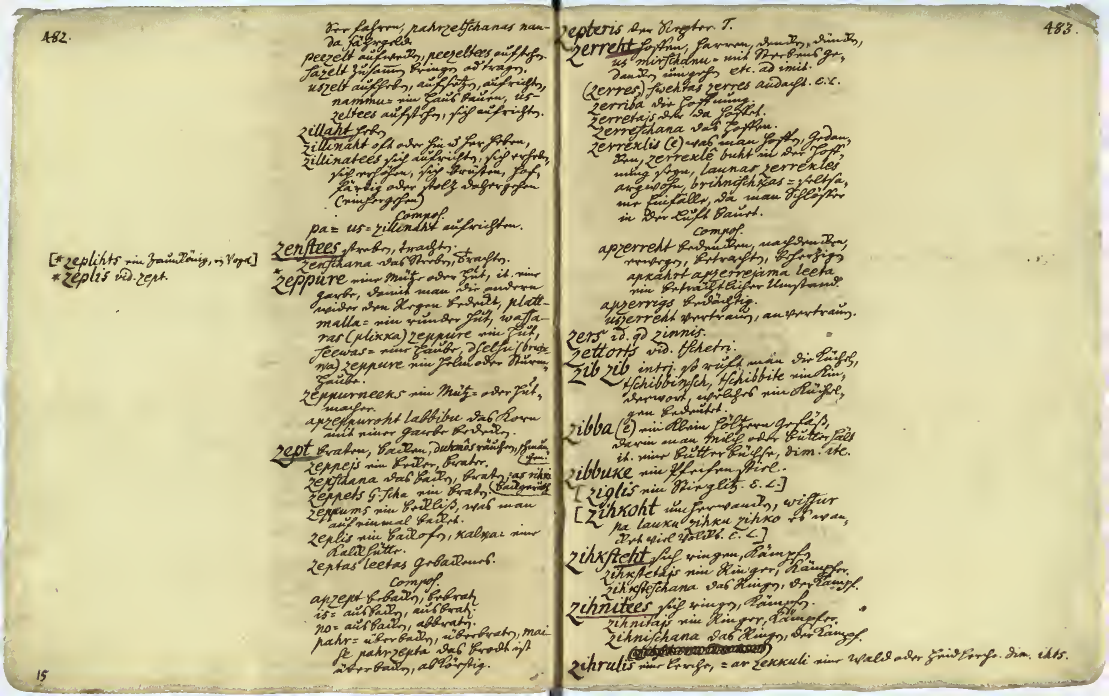 482.
der fahren, pahrzelschanas nau-
da Fährgeld.
peezelt aufwecken, peezeltees aufstehen.
sazelt zusammen bringen od tragen.
uszelt aufheben, aufsetzen, aufrichten,
nammu= ein Haus bauen, us-
zeltees aufstehen, sich aufrichten.
zillaht heben
zillinaht oft oder hin u her heben,
zillinatees sich aufrichten, sich erheben,
sich erhöhen, sich brüsten, hof-
färtig oder stolz daher gehen
(einhergehen)
Compos.
pa= us= zillinaht aufrichten.
zenstees streben, trachten.
zenschana das Streben, Trachten.
[* zeplihts ein Zaunkönig, ein Vogel]
* zeplis vid. zept.
*
zeppure eine Mütze oder Hut, it. eine
garbe, damit man die andern
wider den Regen bedeckt, platt-
malla= ein runder Hut, wassa-
ras (plikka) zeppure ein Hut,
seewas= eine Haube, dselsu (bruņ-
zeppure ein Helm oder Sturm-
haube.
zeppurneeks ein Mütz= oder Hut-
macher.
apzeppuroht labbibu das Korn
mit einer garbe bedecken.
zept braten, backen, duhmôs räuchern,
zeppejs ein Becker, Brater.
zepschana das backen, braten,
zeppets G. scha ein Braten.
zeppums ein Gebäck, was man
auf einmal backet.
zeplis ein Backofen, kalka= eine
Kalkhütte.
zeptas leetas Gebackenes.
Compos.
apzept bebacken, bebraten
is= ausbacken, ausbraten.
no= ausbacken, abbraten.
pahr= überbacken, überbraten, mai-
se pahrzepta das Brodt ist
überbacken, abbörstig.
15
zepteris der Szepter. T.
483.
zerreht hoffen, harren, denken, dünken,
us mirschanu= mit Sterbens ge-
danken umgehen etc. ad imit.
(zerres) swehtas zerres andacht. E. L.
zerriba die Hoffnung.
zerretajs der da hoffet.
zerreschana das Hoffen.
zerreklis (e) was man hoffet, Gedan-
ken, zerreklê buht in der Hoff-
nung seyn, launas zerrekles
argwohn, brihnischkas= seltsa-
me Einfälle, da man Schlösser
in der Luft bauet.
Compos.
apzerreht bedencken, nachdencken,
erwegen, betrachten, beherzigen
apkahrt apzerrejama leeta
ein beträchtlicher Umstand.
apzerrigs bedächtig.
uszerreht vertrauen, anvertrauen.
zers id. qd zinnis.
zettorts vid. tschetri.
zib zib interj. so ruft man die Küchel,
tschibbinsch, tschibbite ein Kin-
derwort, welches ein Küchel-
gen bedeutet.
zibba (e) ein klein hölzern Gefäß,
darin man Milch oder Butter hält
it. eine Butter büchse, dim. ite.
zibbuke ein Pfeifen Stiel.
[ziglis ein Stieglitz. E. L.]
[zihkoht umherwandern, wissur
pa lauku zihku zihko es wan-
dert viel Volcks. E. L.]
zihksteht sich ringen, kämpfen
zihkstetajs ein Ringer, Kämpfer.
zihksteschana das Ringen, der Kampf.
zihnitees sich ringen, kämpfen.
zihnitajs ein Ringer, Kämpfer.
zihnischana das Ringen, der Kampf.
zihrulis eine Lerche, = ar zekkuli eine Wald oder Heid Lerche. dim. ihts.